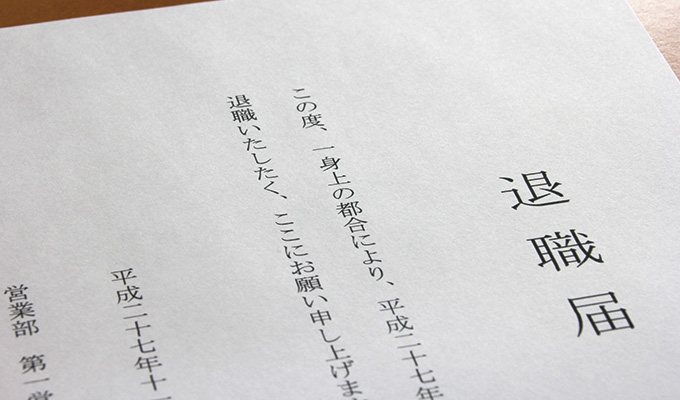 退職届
この度、一身上の都合により、平成二十七年
退職いたしたく、ここにお願い申し上げま
平成二十七年十
営業部 第一営